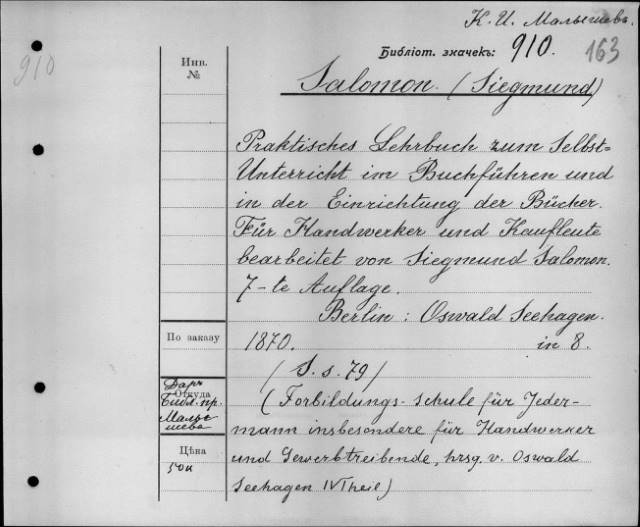 К. И. Малышевъ.
910
Библіот. значекъ: 910.
163
Инв.
№
Salomon. (Siegmund)
Praktisches Lehrbuch zum Selbst=
Unterricht im Buchführen und
in der Einrichtung der Bücher.
Für Handwerker und Kaufleute
bearbeitet von Siegmund Salomon.
7-te Auflage.
Berlin : Oswald Seehagen.
По заказу
1870. in 8.
(S. s. 79)
Откуда
Даръ
Библ. пр.
Малы
шева
(Forbildungs-schule für Jeder-
mann insbesondere für Handwerker
Цѣна
und Gewerbtreibende, hrsg. v. Oswald
Seehagen IV Theil)